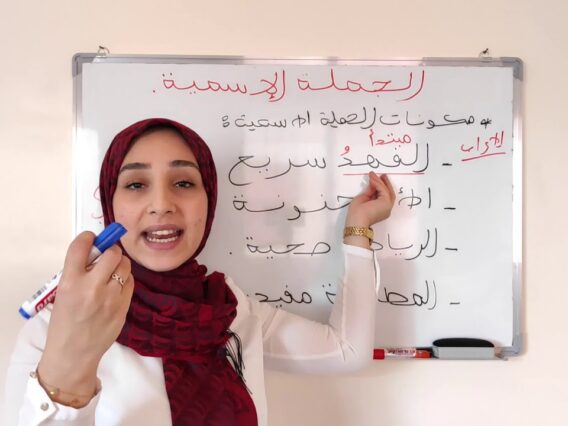 الجملة الإسمية.
* مكونات الجملة الاسمية:
مبتدأ
الإعراب
- الفهدُ سريع
- الأم حنونة
- الرياضة صحية.
- المطالعة مفيدة